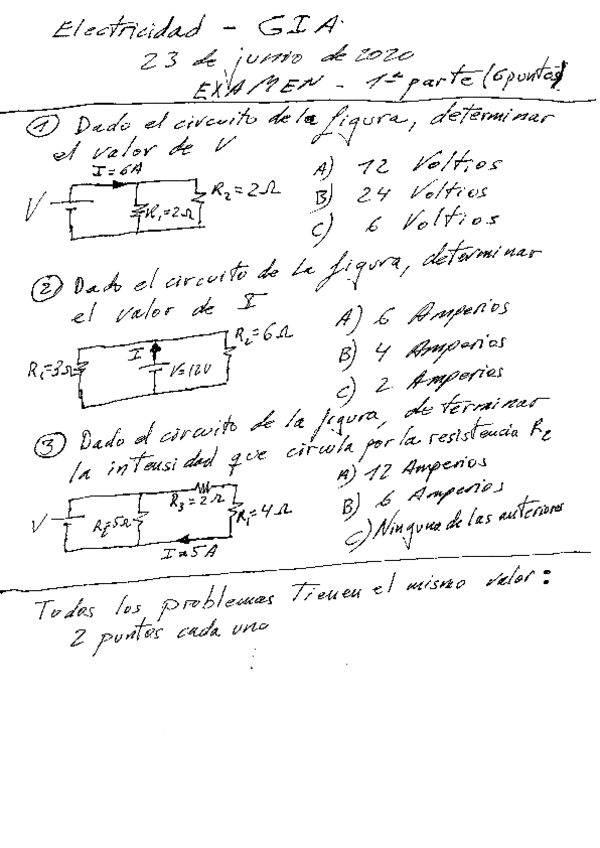 Electricidad - GIA.
23 de junio de 2020
EXAMEN - 1ª parte (6 puntos)
① Dado el circuito de la figura, determinar
el valor de V
A) 12 Voltios
B) 24 Voltios
C) 6 Voltios
I=6A
V
R₁=2Ω
R₂=2Ω
② Dado el circuito de la figura, determinar
el valor de I
A) 6 Amperios
B) 4 Amperios
C) 2 Amperios
R₁=3Ω
I
V=12V
R₂=6Ω
③ Dado el circuito de la figura, determinar
la intensidad que circula por la resistencia R₂
A) 12 Amperios
B) 6 Amperios
C) Ninguna de las anteriores
V
R₂=5Ω
R₃=2Ω
R₁=4Ω
I=5A
Todos los problemas tienen el mismo valor:
2 puntos cada uno